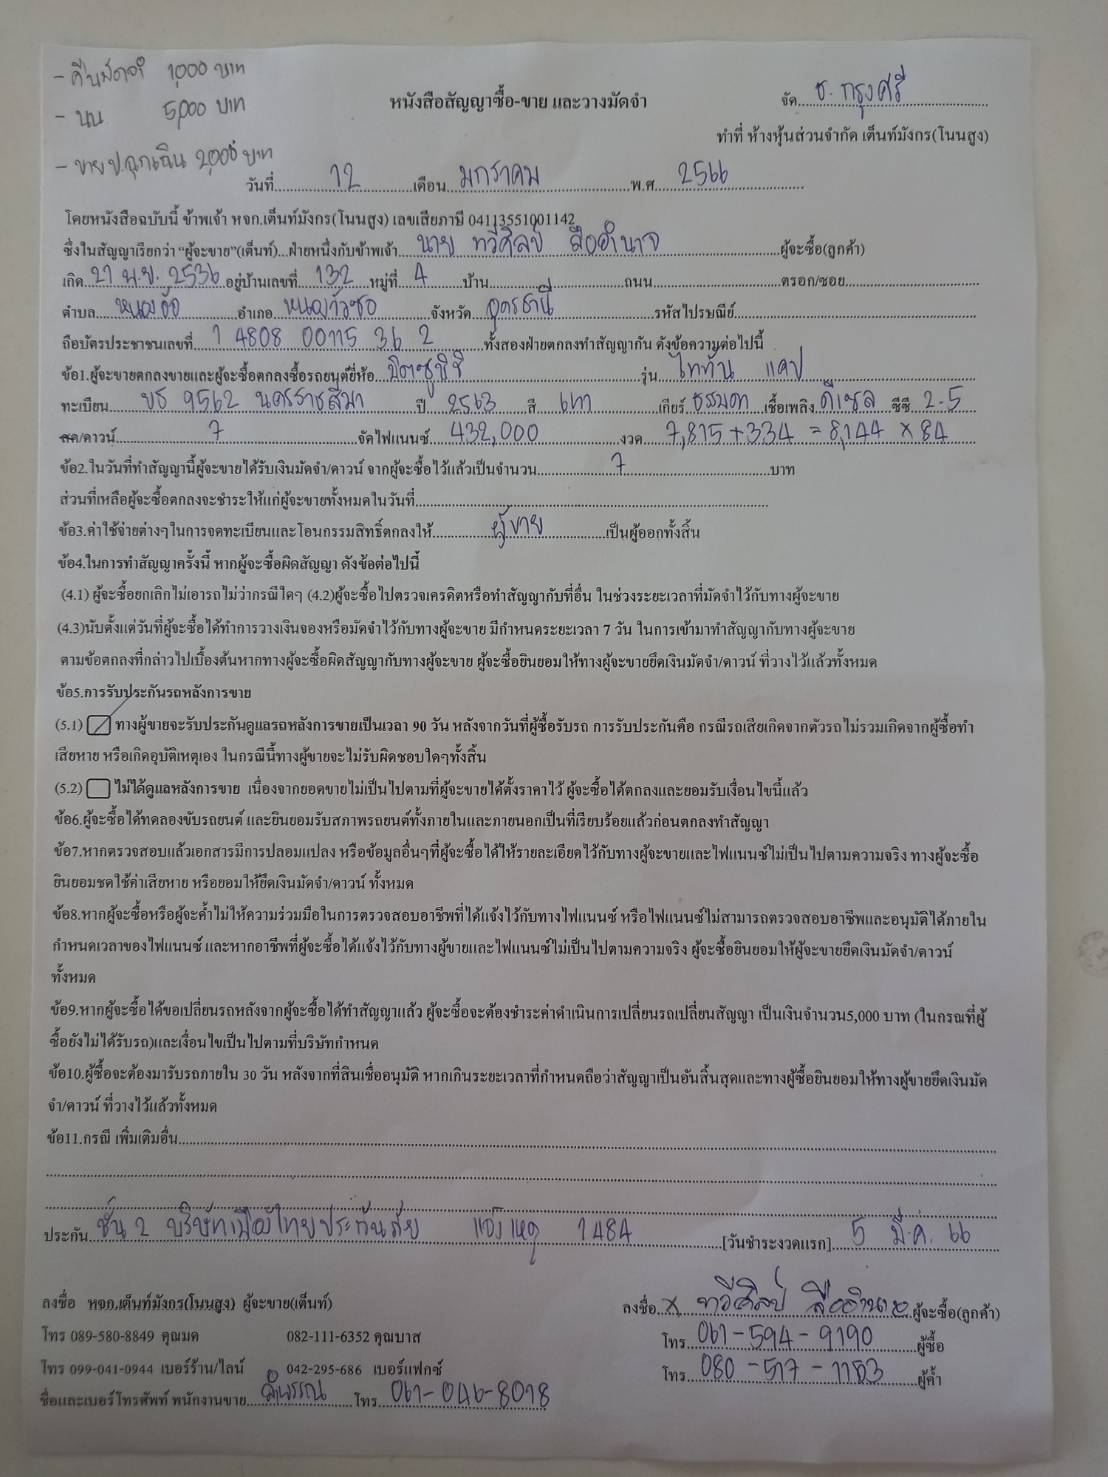 - คืนมัดจำ 1,000 บาท
- นน 5,000 บาท
- ขาย ป.ฉุกเฉิน 2,000 บาท
หนังสือสัญญาซื้อ-ขาย และวางมัดจำ
จัด ธ. กรุงศรี
ทำที่ ห้างหุ้นส่วนจำกัด เต็นท์มังกร(โนนสูง)
วันที่ 12 เดือน มกราคม พ.ศ. 2566
โดยหนังสือฉบับนี้ ข้าพเจ้า หจก.เต็นท์มังกร(โนนสูง) เลขเสียภาษี 04113551001142
ซึ่งในสัญญาเรียกว่า “ผู้จะขาย”(เต็นท์)...ฝ่ายหนึ่งกับข้าพเจ้า นาย ทวีศิลป์ ลืออำนาจ ผู้จะซื้อ(ลูกค้า)
เกิด 27 พ.ย. 2536 อยู่บ้านเลขที่ 132 หมู่ที่ 4 บ้าน ถนน ตรอก/ซอย
ตำบล หนองอ้อ อำเภอ หนองวัวซอ จังหวัด อุดรธานี รหัสไปรษณีย์
ถือบัตรประชาชนเลขที่ 1 4808 00115 36 2 ทั้งสองฝ่ายตกลงทำสัญญากัน ดังข้อความต่อไปนี้
ข้อ1.ผู้จะขายตกลงขายและผู้จะซื้อตกลงซื้อรถยนต์ยี่ห้อ มิตซูบิชิ รุ่น ไททัน แคป
ทะเบียน 9562 นครราชสีมา ปี 2563 สี เทา เกียร์ ธรรมดา เชื้อเพลิง ดีเซล ซีซี 2.5
สด/ดาวน์ 7 จัดไฟแนนซ์ 432,000 งวด 7,815 + 334 = 8,144 x 84
ข้อ2.ในวันที่ทำสัญญานี้ผู้จะขายได้รับเงินมัดจำ/ดาวน์ จากผู้จะซื้อไว้แล้วเป็นจำนวน 7 บาท
ส่วนที่เหลือผู้จะซื้อตกลงจะชำระให้แก่ผู้จะขายทั้งหมดในวันที่
ข้อ3.ค่าใช้จ่ายต่างๆในการจดทะเบียนและโอนกรรมสิทธิ์ตกลงให้ ผู้ขาย เป็นผู้ออกทั้งสิ้น
ข้อ4.ในการทำสัญญาครั้งนี้ หากผู้จะซื้อผิดสัญญา ดังข้อต่อไปนี้
(4.1) ผู้จะซื้อยกเลิกไม่เอารถไม่ว่ากรณีใดๆ (4.2)ผู้จะซื้อไปตรวจเครดิตหรือทำสัญญากับที่อื่น ในช่วงระยะเวลาที่มัดจำไว้กับทางผู้จะขาย
(4.3)นับตั้งแต่วันที่ผู้จะซื้อได้ทำการวางเงินจองหรือมัดจำไว้กับทางผู้จะขาย มีกำหนดระยะเวลา 7 วัน ในการเข้ามาทำสัญญากับทางผู้จะขาย
ตามข้อตกลงที่กล่าวไปเบื้องต้นหากทางผู้จะซื้อผิดสัญญากับทางผู้จะขาย ผู้จะซื้อยินยอมให้ทางผู้จะขายยึดเงินมัดจำ/ดาวน์ ที่วางไว้แล้วทั้งหมด
ข้อ5.การรับประกันรถหลังการขาย
(5.1) ทางผู้ขายจะรับประกันดูแลรถหลังการขายเป็นเวลา 90 วัน หลังจากวันที่ผู้ซื้อรับรถ การรับประกันคือ กรณีรถเสียเกิดจากตัวรถ ไม่รวมเกิดจากผู้ซื้อทำ
เสียหาย หรือเกิดอุบัติเหตุเอง ในกรณีนี้ทางผู้ขายจะไม่รับผิดชอบใดๆทั้งสิ้น
(5.2) ไม่ได้ดูแลหลังการขาย เนื่องจากยอดขายไม่เป็นไปตามที่ผู้จะขายได้ตั้งราคาไว้ ผู้จะซื้อได้ตกลงและยอมรับเงื่อนไขนี้แล้ว
ข้อ6.ผู้จะซื้อได้ทดลองขับรถยนต์ และยินยอมรับสภาพรถยนต์ทั้งภายในและภายนอกเป็นที่เรียบร้อยแล้วก่อนตกลงทำสัญญา
ข้อ7.หากตรวจสอบแล้วเอกสารมีการปลอมแปลง หรือข้อมูลอื่นๆที่ผู้จะซื้อได้ให้รายละเอียดไว้กับทางผู้จะขายและไฟแนนซ์ไม่เป็นไปตามความจริง ทางผู้จะซื้อ
ยินยอมชดใช้ค่าเสียหาย หรือยอมให้ยึดเงินมัดจำ/ดาวน์ ทั้งหมด
ข้อ8.หากผู้จะซื้อหรือผู้จะค้ำไม่ให้ความร่วมมือในการตรวจสอบอาชีพที่ได้แจ้งไว้กับทางไฟแนนซ์ หรือไฟแนนซ์ไม่สามารถตรวจสอบอาชีพและอนุมัติได้ภายใน
กำหนดเวลาของไฟแนนซ์ และหากอาชีพที่ผู้จะซื้อได้แจ้งไว้กับทางผู้ขายและไฟแนนซ์ไม่เป็นไปตามความจริง ผู้จะซื้อยินยอมให้ผู้จะขายยึดเงินมัดจำ/ดาวน์
ทั้งหมด
ข้อ9.หากผู้จะซื้อได้ขอเปลี่ยนรถหลังจากผู้จะซื้อได้ทำสัญญาแล้ว ผู้จะซื้อจะต้องชำระค่าดำเนินการเปลี่ยนรถเปลี่ยนสัญญา เป็นเงินจำนวน5,000 บาท (ในกรณที่ผู้
ซื้อยังไม่ได้รับรถ)และเงื่อนไขเป็นไปตามที่บริษัทกำหนด
ข้อ10.ผู้ซื้อจะต้องมารับรถภายใน 30 วัน หลังจากที่สินเชื่ออนุมัติ หากเกินระยะเวลาที่กำหนดถือว่าสัญญาเป็นอันสิ้นสุดและทางผู้ซื้อยินยอมให้ทางผู้ขายยึดเงินมัด
จำ/ดาวน์ ที่วางไว้แล้วทั้งหมด
ข้อ11.กรณี เพิ่มเติมอื่น
ประกัน ชั้น 2 บริษัทเมืองไทยประกันภัย แจ้งเหตุ 1484 [วันชำระงวดแรก] 5 มี.ค. 66
ลงชื่อ หจก.เต็นท์มังกร(โนนสูง) ผู้จะขาย(เต็นท์)
ลงชื่อ x ทวีศิลป์ ลืออำนาจ ผู้จะซื้อ(ลูกค้า)
โทร 089-580-8849 คุณมด 082-111-6352 คุณบาส
โทร 061-594-9190 ผู้ซื้อ
โทร 099-041-0944 เบอร์ร้าน/ไลน์ 042-295-686 เบอร์แฟกซ์
โทร 080-517-1153 ผู้ค้ำ
ชื่อและเบอร์โทรศัพท์ พนักงานขาย โทร 061-046-8018